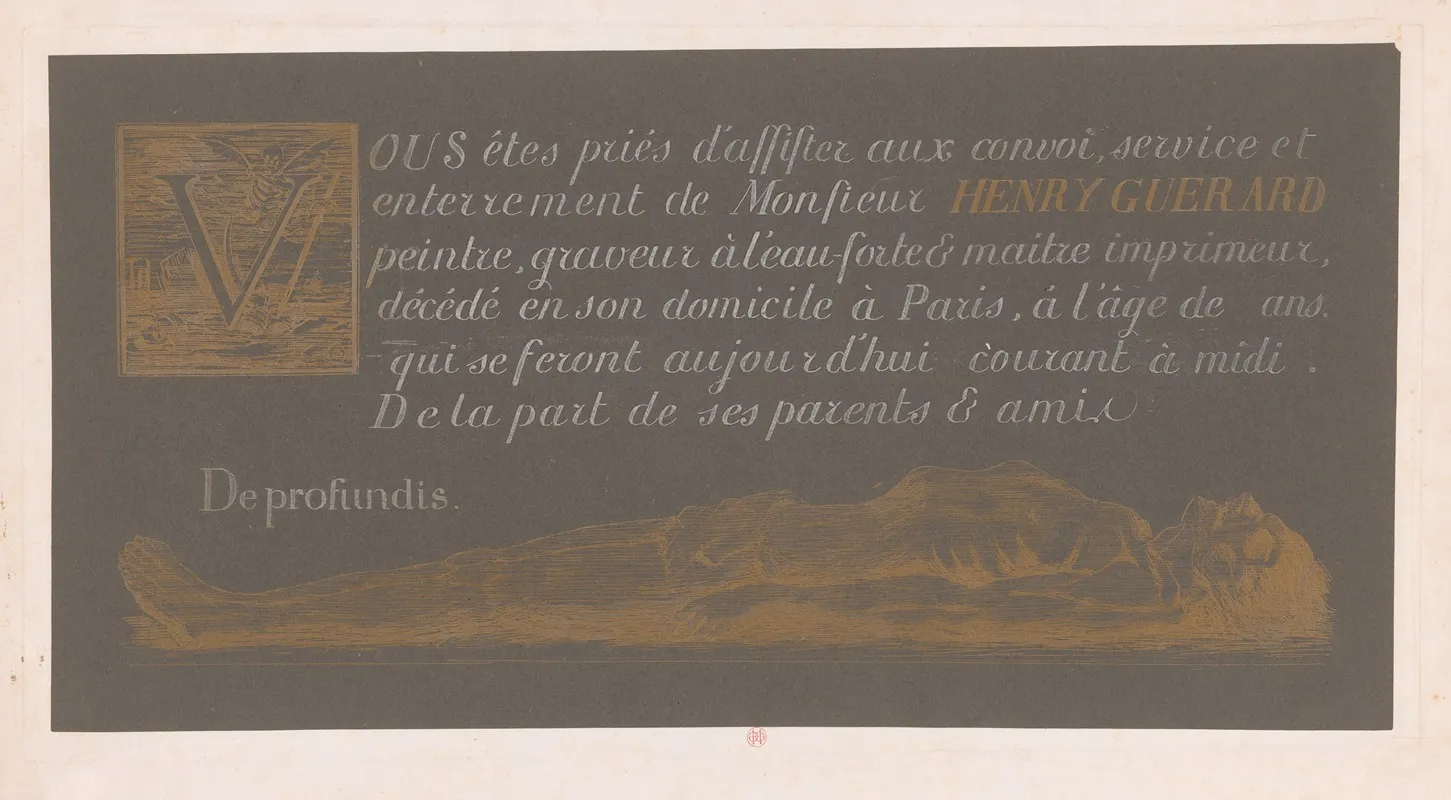 VOUS êtes priés d'aſſiſter aux convoi, service et
enterrement de Monſieur HENRY GUERARD
peintre, graveur à l'eau-forte & maitre imprimeur,
décédé en son domicile à Paris, á l'âge de ans.
qui se feront aujourd'hui courant à midi.
De la part de ses parents & amis
De profundis.